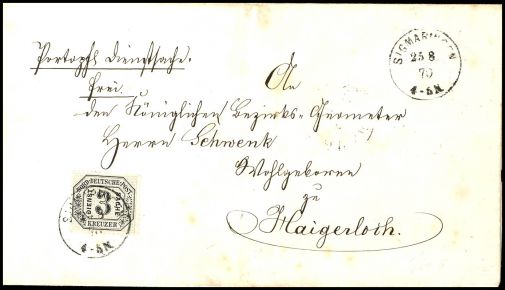 Portopfl. Dienstsache.
frei.
An
den Königlichen Bezirks-Geometer
Herrn Schwenk
Wohlgeboren
zu
Haigerloch.
SIGMARINGEN
25 8
70
4-5N
NORDDEUTSCHE POST
DIENST SACHE
3
KREUZER
4-5N